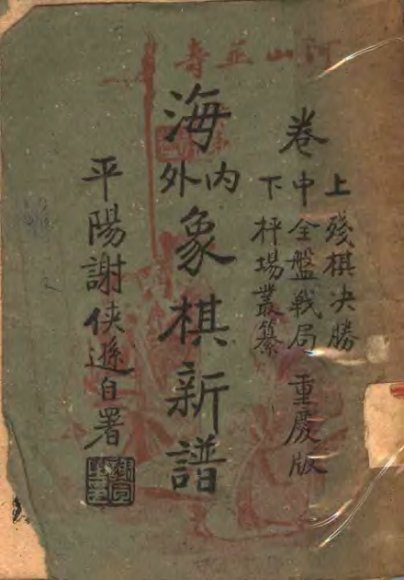 河山並壽
卷
上殘棋决勝
中全盤戰局
下枰場叢纂
重慶版
海內外象棋新譜
平陽謝俠遜自署